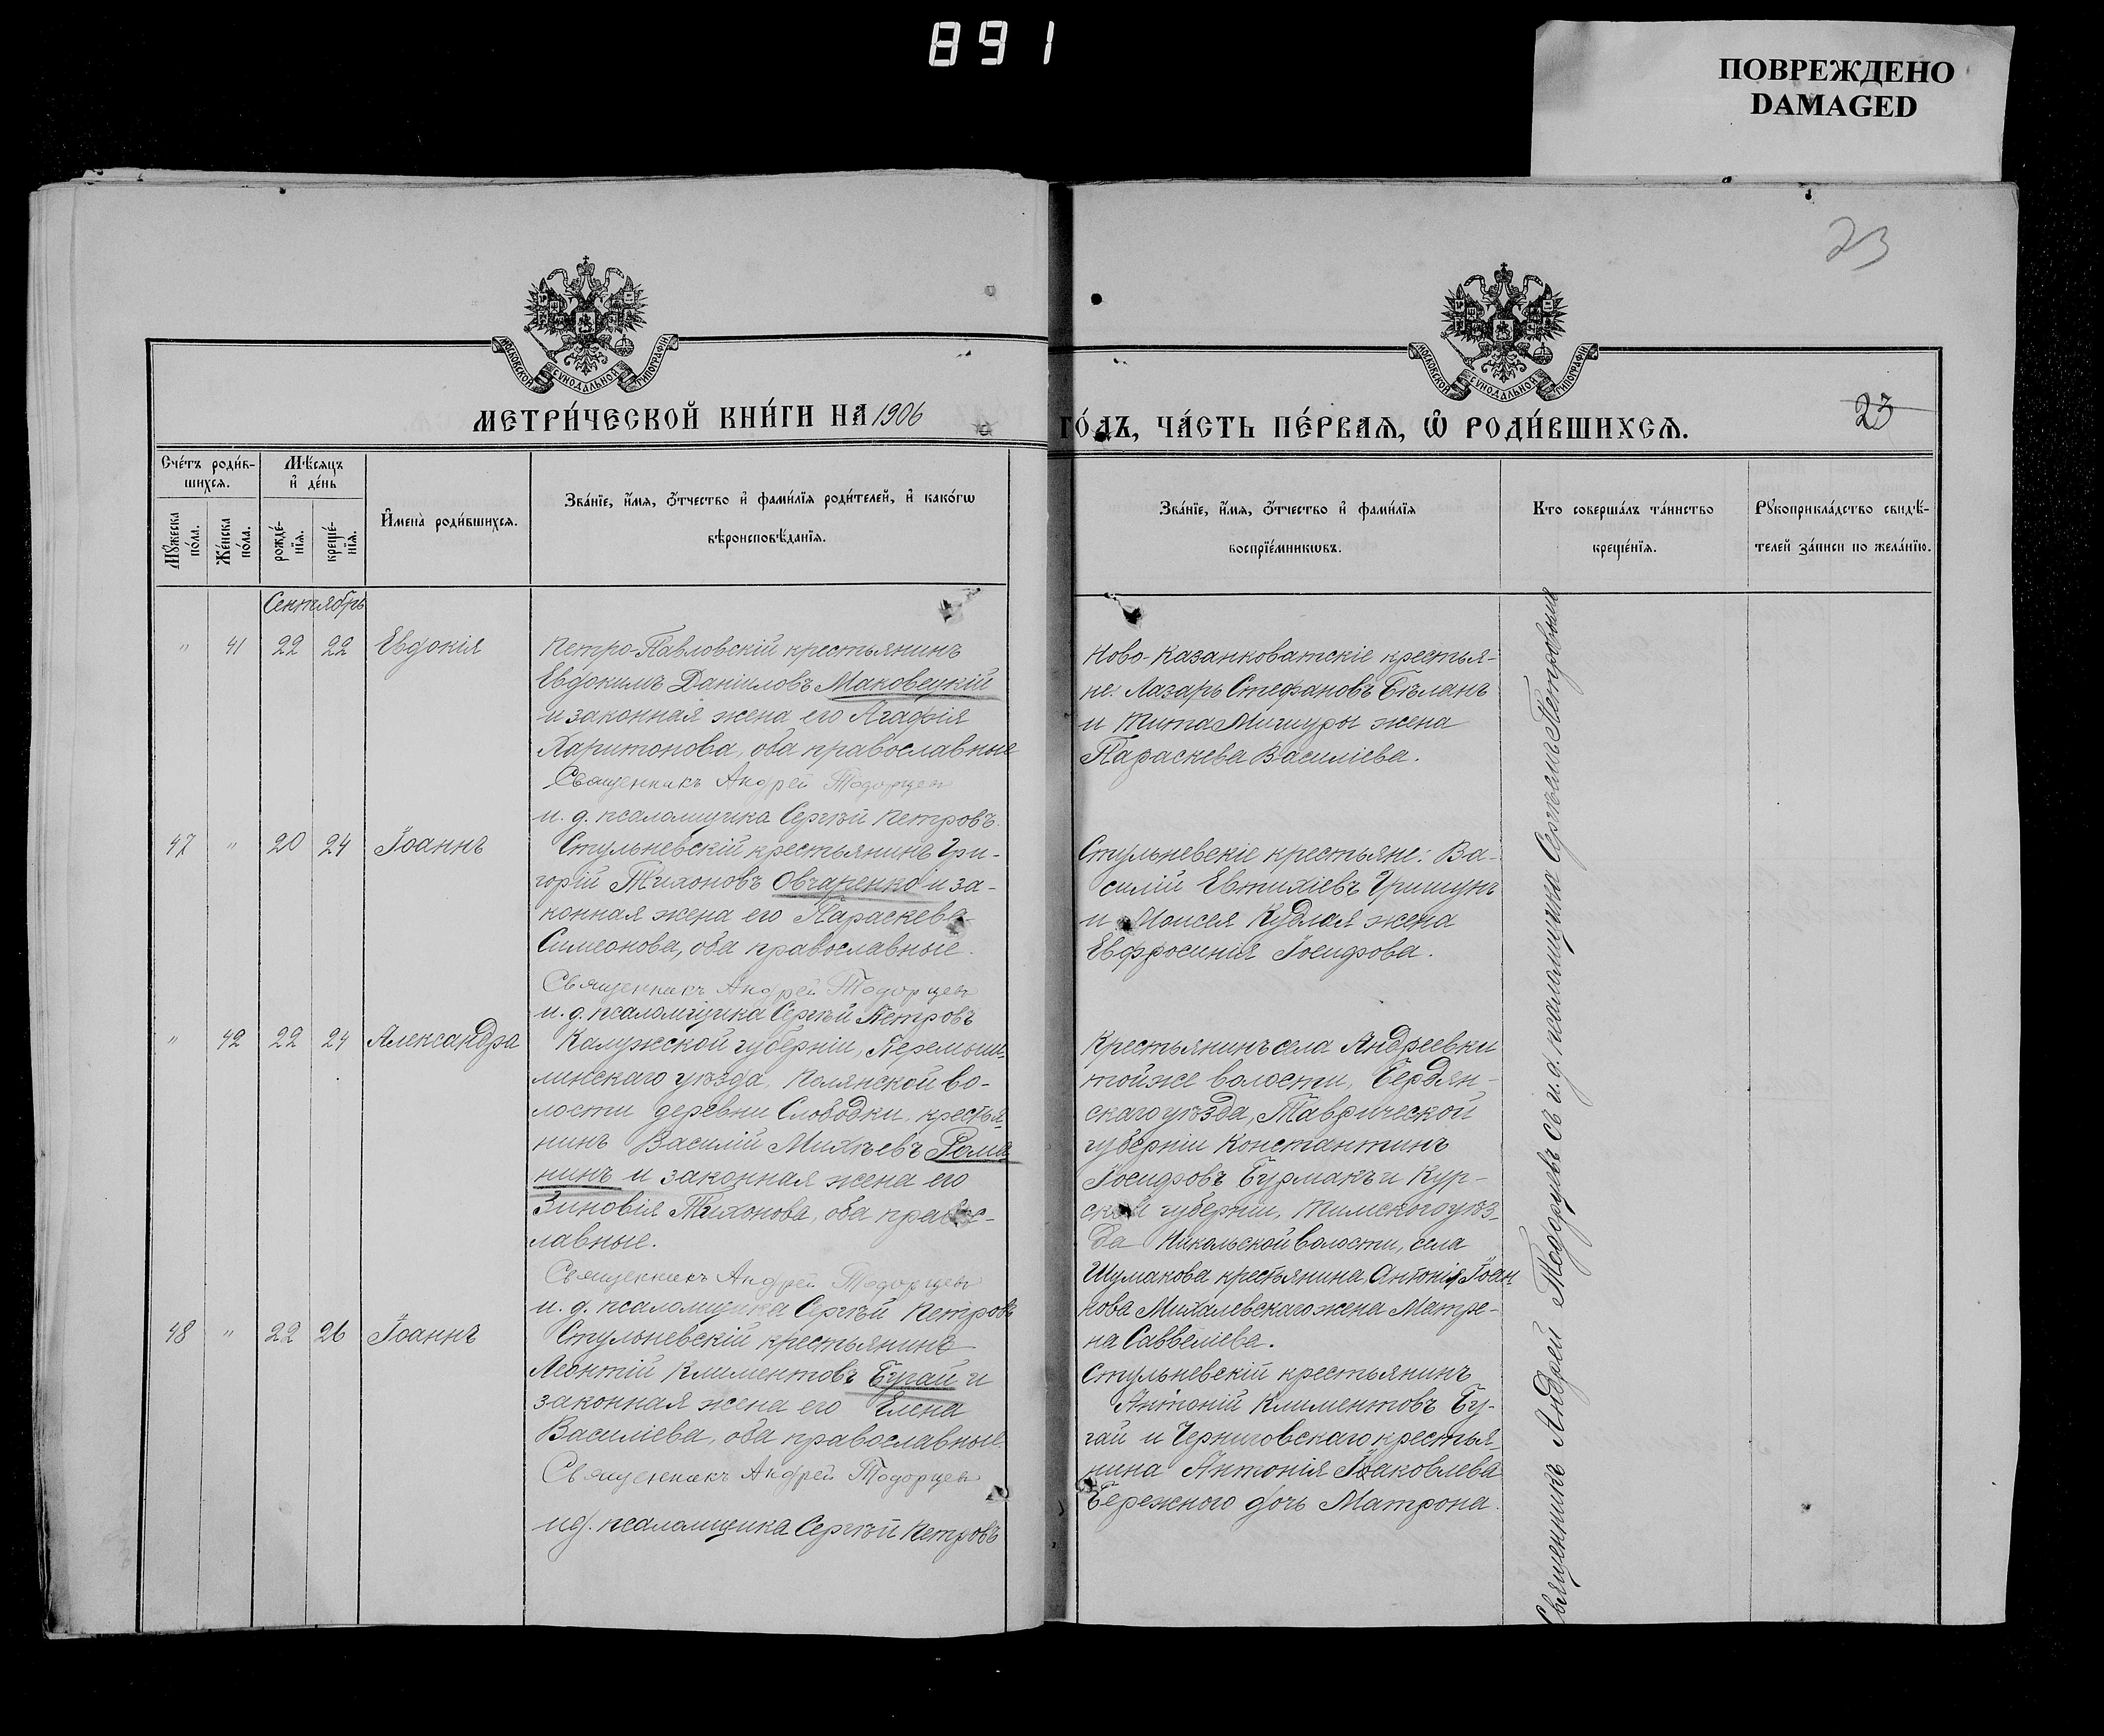 891
ПОВРЕЖДЕНО
DAMAGED
23
МОСКОВСКОЙ СѴНОДАЛЬНОЙ ТИПОГРАФІИ
МОСКОВСКОЙ СѴНОДАЛЬНОЙ ТИПОГРАФІИ
МЕТРИ́ЧЕСКОЙ КНИ́ГИ НА 1906
ГО́ДЪ, ЧА́СТЬ ПЕ́РВАѦ, Ѽ РОДИ́ВШИХСѦ.
23
Сче́тъ роди́в-
шихсѧ.
Мѣ́сѧцъ
и҆ де́нь
Мꙋ́жеска
по́ла.
Же́нска
по́ла.
рожде́-
нїѧ.
креще́-
нїѧ.
И҆мена̀ роди́вшихсѧ.
Зва́нїе, и҆́мѧ, ѻ҆́тчество и҆ фами́лїѧ роди́телей, и҆ како́гѡ
вѣроисповѣ́данїѧ.
Зва́нїе, и҆́мѧ, ѻ҆́тчество и҆ фами́лїѧ
воспрїе́мникѡвъ.
Кто соверша́лъ та́инство
креще́нїѧ.
Рꙋкоприкла́дство свидѣ́-
телей за́писи по жела́нїю.
Сентябрь
" 41 22 22 Евдокія
Петро-Павловскій крестьянинъ
Евдокимъ Даніиловъ Маковецкій
и законная жена его Агафія
Харитонова, оба православные
Священникъ Андрей Тодорцевъ
и. д. псаломщика Сергѣй Петровъ.
Ново-Казанковатскіе крестья-
не: Лазарь Стефановъ Бѣланъ
и Тита Мишуры жена
Параскева Василіева.
47 " 20 24 Іоаннъ
Стульневскій крестьянинъ Гри-
горій Тихоновъ Овчаренко и за-
конная жена его Параскева
Симеонова, оба православные.
Священникъ Андрей Тодорцевъ
и. д. псаломщика Сергѣй Петровъ
Стульневскіе крестьяне: Ва-
силій Евтихіевъ Гришунъ
и Моисея Кудлая жена
Евфросинія Іосифова.
" 42 22 24 Александра
Калужской губерніи, Перемыш-
линскаго уѣзда, Полянской во-
лости деревни Слободки, крестья-
нинъ Василій Михѣевъ Рома
нинъ и законная жена его
Зиновія Тихонова, оба право-
лавные.
Священникъ Андрей Тодорцевъ
и. д. псаломщика Сергѣй Петровъ
Крестьянинъ села Андреевки
тойже волости, Бердян-
скаго уѣзда, Таврической
губерніи Константинъ
Іосифовъ Бурмакъ и Кур-
ской губерніи, Тимского уѣз-
да Никольской волости, села
Шумакова крестьянина, Антонія Іоан
нова Михалевскаго жена Матре-
на Саввеліева.
48 " 22 26 Іоаннъ
Стульневскій крестьянинъ
Леонтій Климентовъ Бугай и
законная жена его Елена
Василіева, оба православные.
Священникъ Андрей Тодорцевъ
ид. псаломщика Сергѣй Петровъ
Стульневскій крестьянинъ
Антоній Климентовъ Бу-
гай и Черниговскаго крестья-
нина Антонія Іаковлева
Бережного дочь Матрона.
Священникъ Андрей Тодорцевъ съ и.д. псаломщика Сергѣемъ Петровымъ